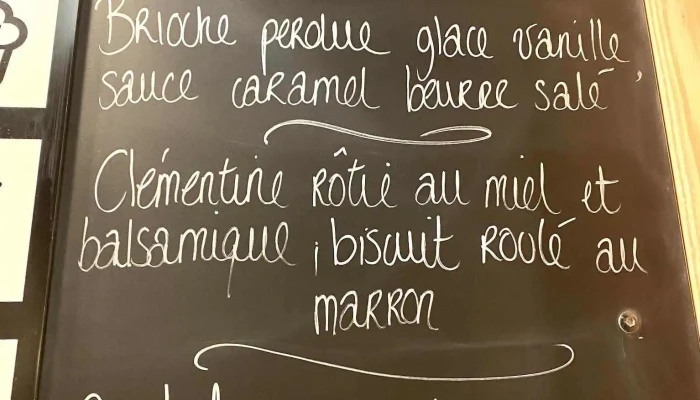 Brioche perdue glace vanille,
sauce caramel beurre salé
Clémentine rôtie au miel et
balsamique, biscuit roulé au
marron